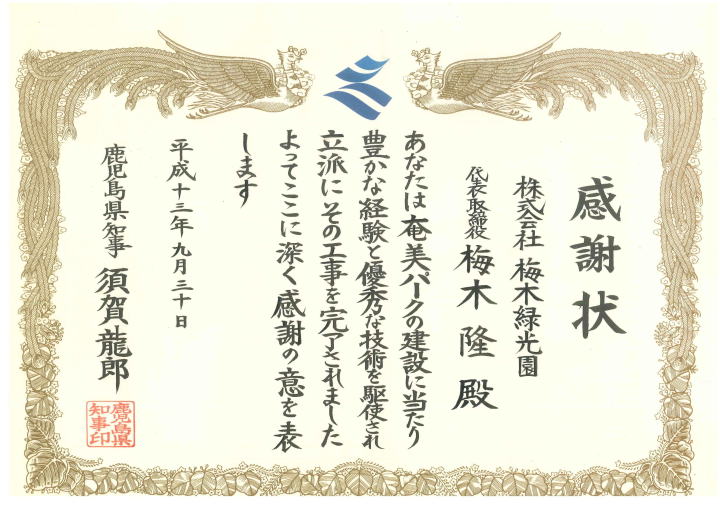 感謝状
株式会社 梅木緑光園
代表取締役 梅木 隆 殿
あなたは奄美パークの建設に当たり
豊かな経験と優秀な技術を駆使され
立派にその工事を完了されました
よってここに深く感謝の意を表
します
平成十三年九月三十日
鹿児島県知事 須賀龍郎
鹿児島県
知事印